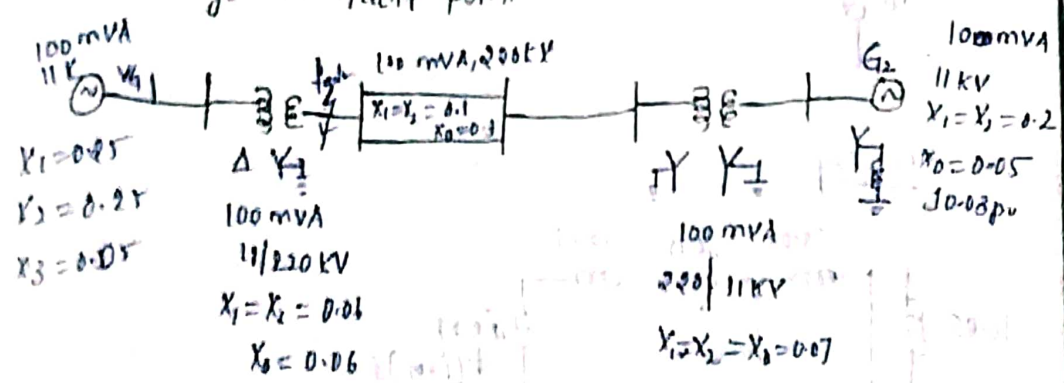 100 mVA
11 K
X1=0.25
X2 = 0.25
X3 = 0.05
Δ Y
100 mVA
11/220 KV
X1 = X2 = 0.06
X0 = 0.06
100 mVA, 220KV
X1=X2 = 0.1
X0=0.3
Y Y
100 mVA
220/11KV
X1=X2=X0=0.07
G2
Y
100mVA
11 KV
X1=X2=0.2
X0=0.05
J0.03pu